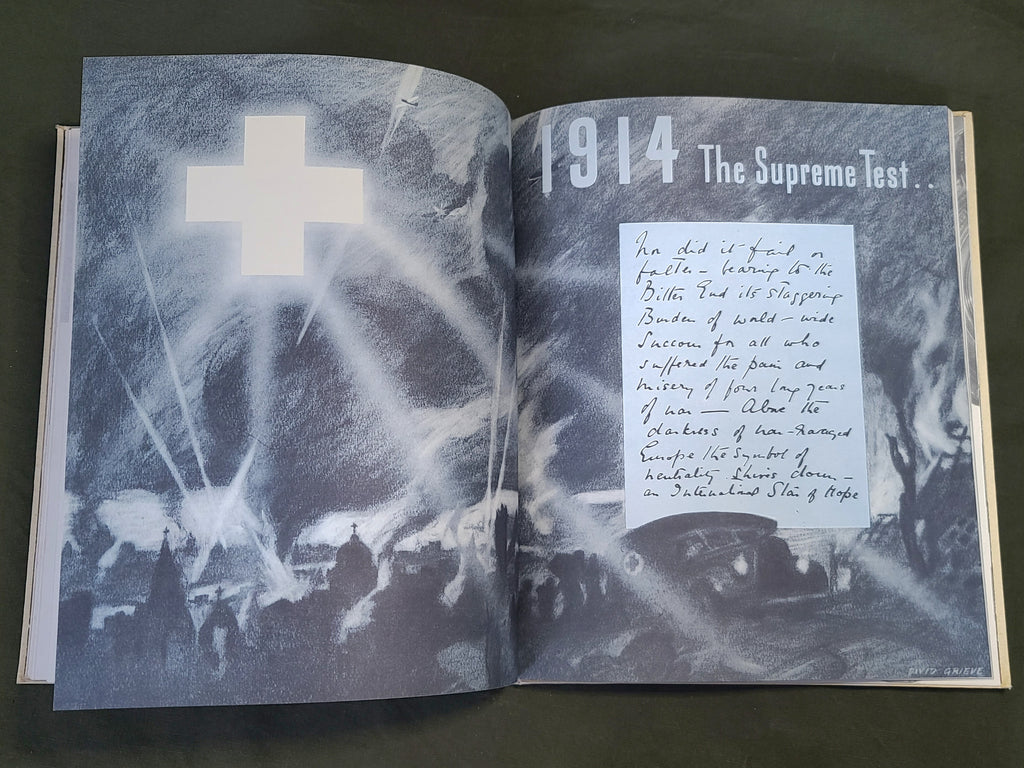 1914 The Supreme Test..
Nor did it fail or
falter – bearing to the
Bitter End its staggering
Burden of world – wide
Succour for all who
suffered the pain and
misery of four long years
of war — Above the
darkness of war-Ravaged
Europe the symbol of
neutrality shines down –
an International Star of Hope
DAVID GRIEVE